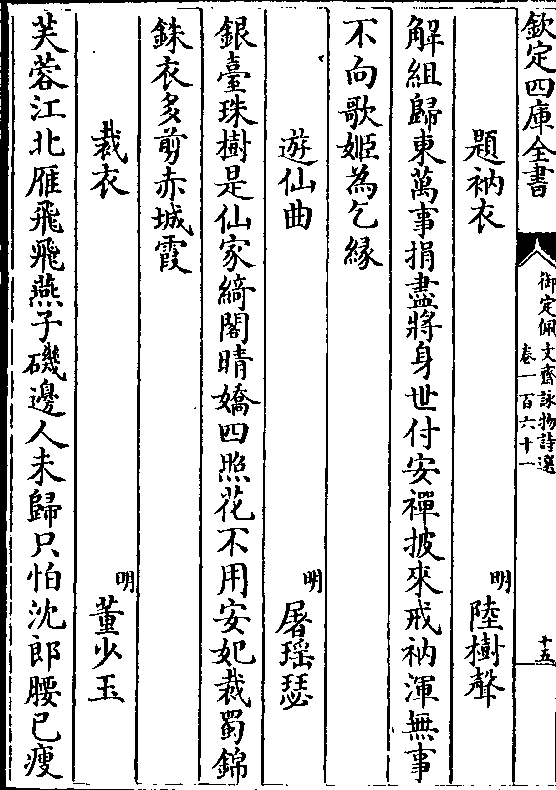 欽定四庫全書
御定佩文齋詠物詩選
卷一百六十一
十五
題衲衣
明
陸樹聲
解組歸東萬事捐盡將身世付安禪披來戒衲渾無事
不向歌姬為乞緣
遊仙曲
明
屠瑶瑟
銀臺珠樹是仙家綺閣晴嬌四照花不用安妃裁蜀錦
銖衣多剪赤城霞
裁衣
明
董少玉
芙蓉江北雁飛飛燕子磯邊人未歸只怕沈郎腰已瘦